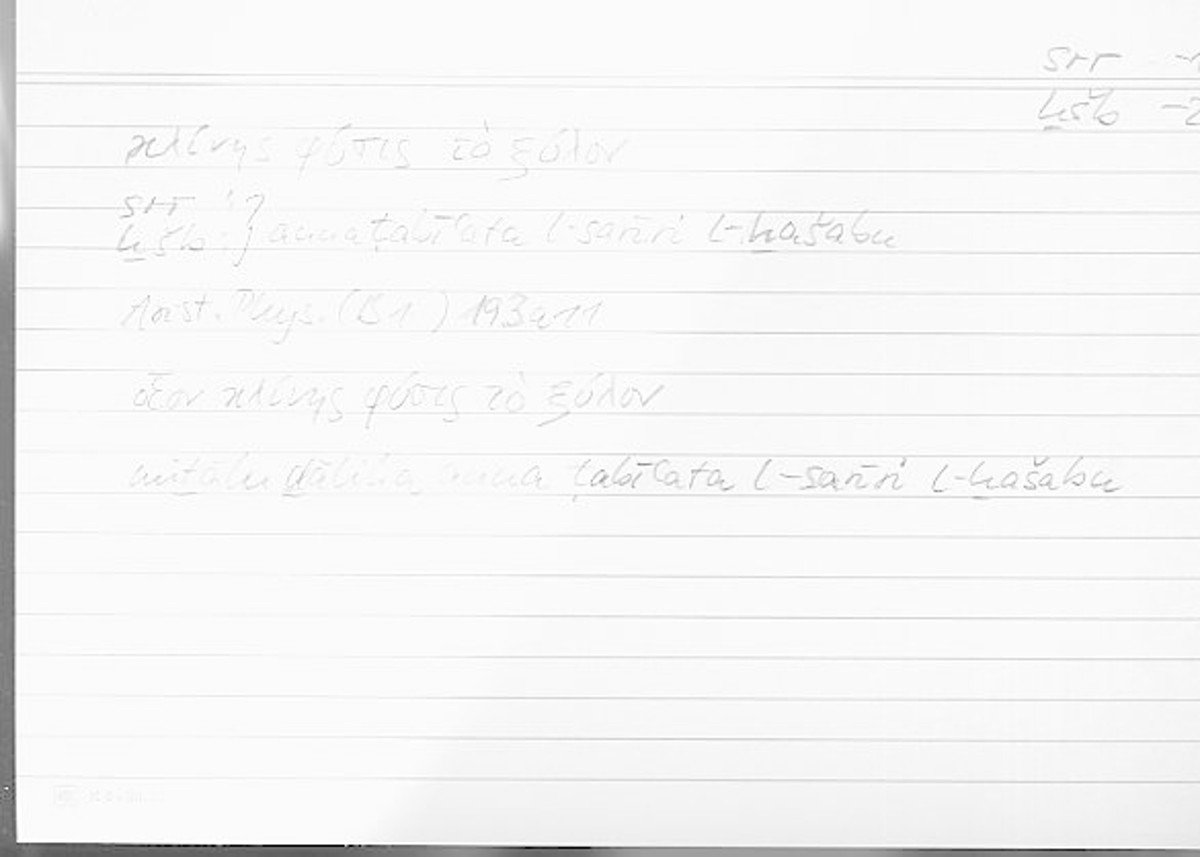 srr
ḫšb -2
κλίνης φύσις τὸ ξύλον
srr :
ḫšb : } anna ṭabīʿata l-sarīri l-ḫašabu
Arist. Phys. (B 1) 193a11
οἷον κλίνης φύσις τὸ ξύλον
miṯālu ḏālika anna ṭabīʿata l-sarīri l-ḫašabu